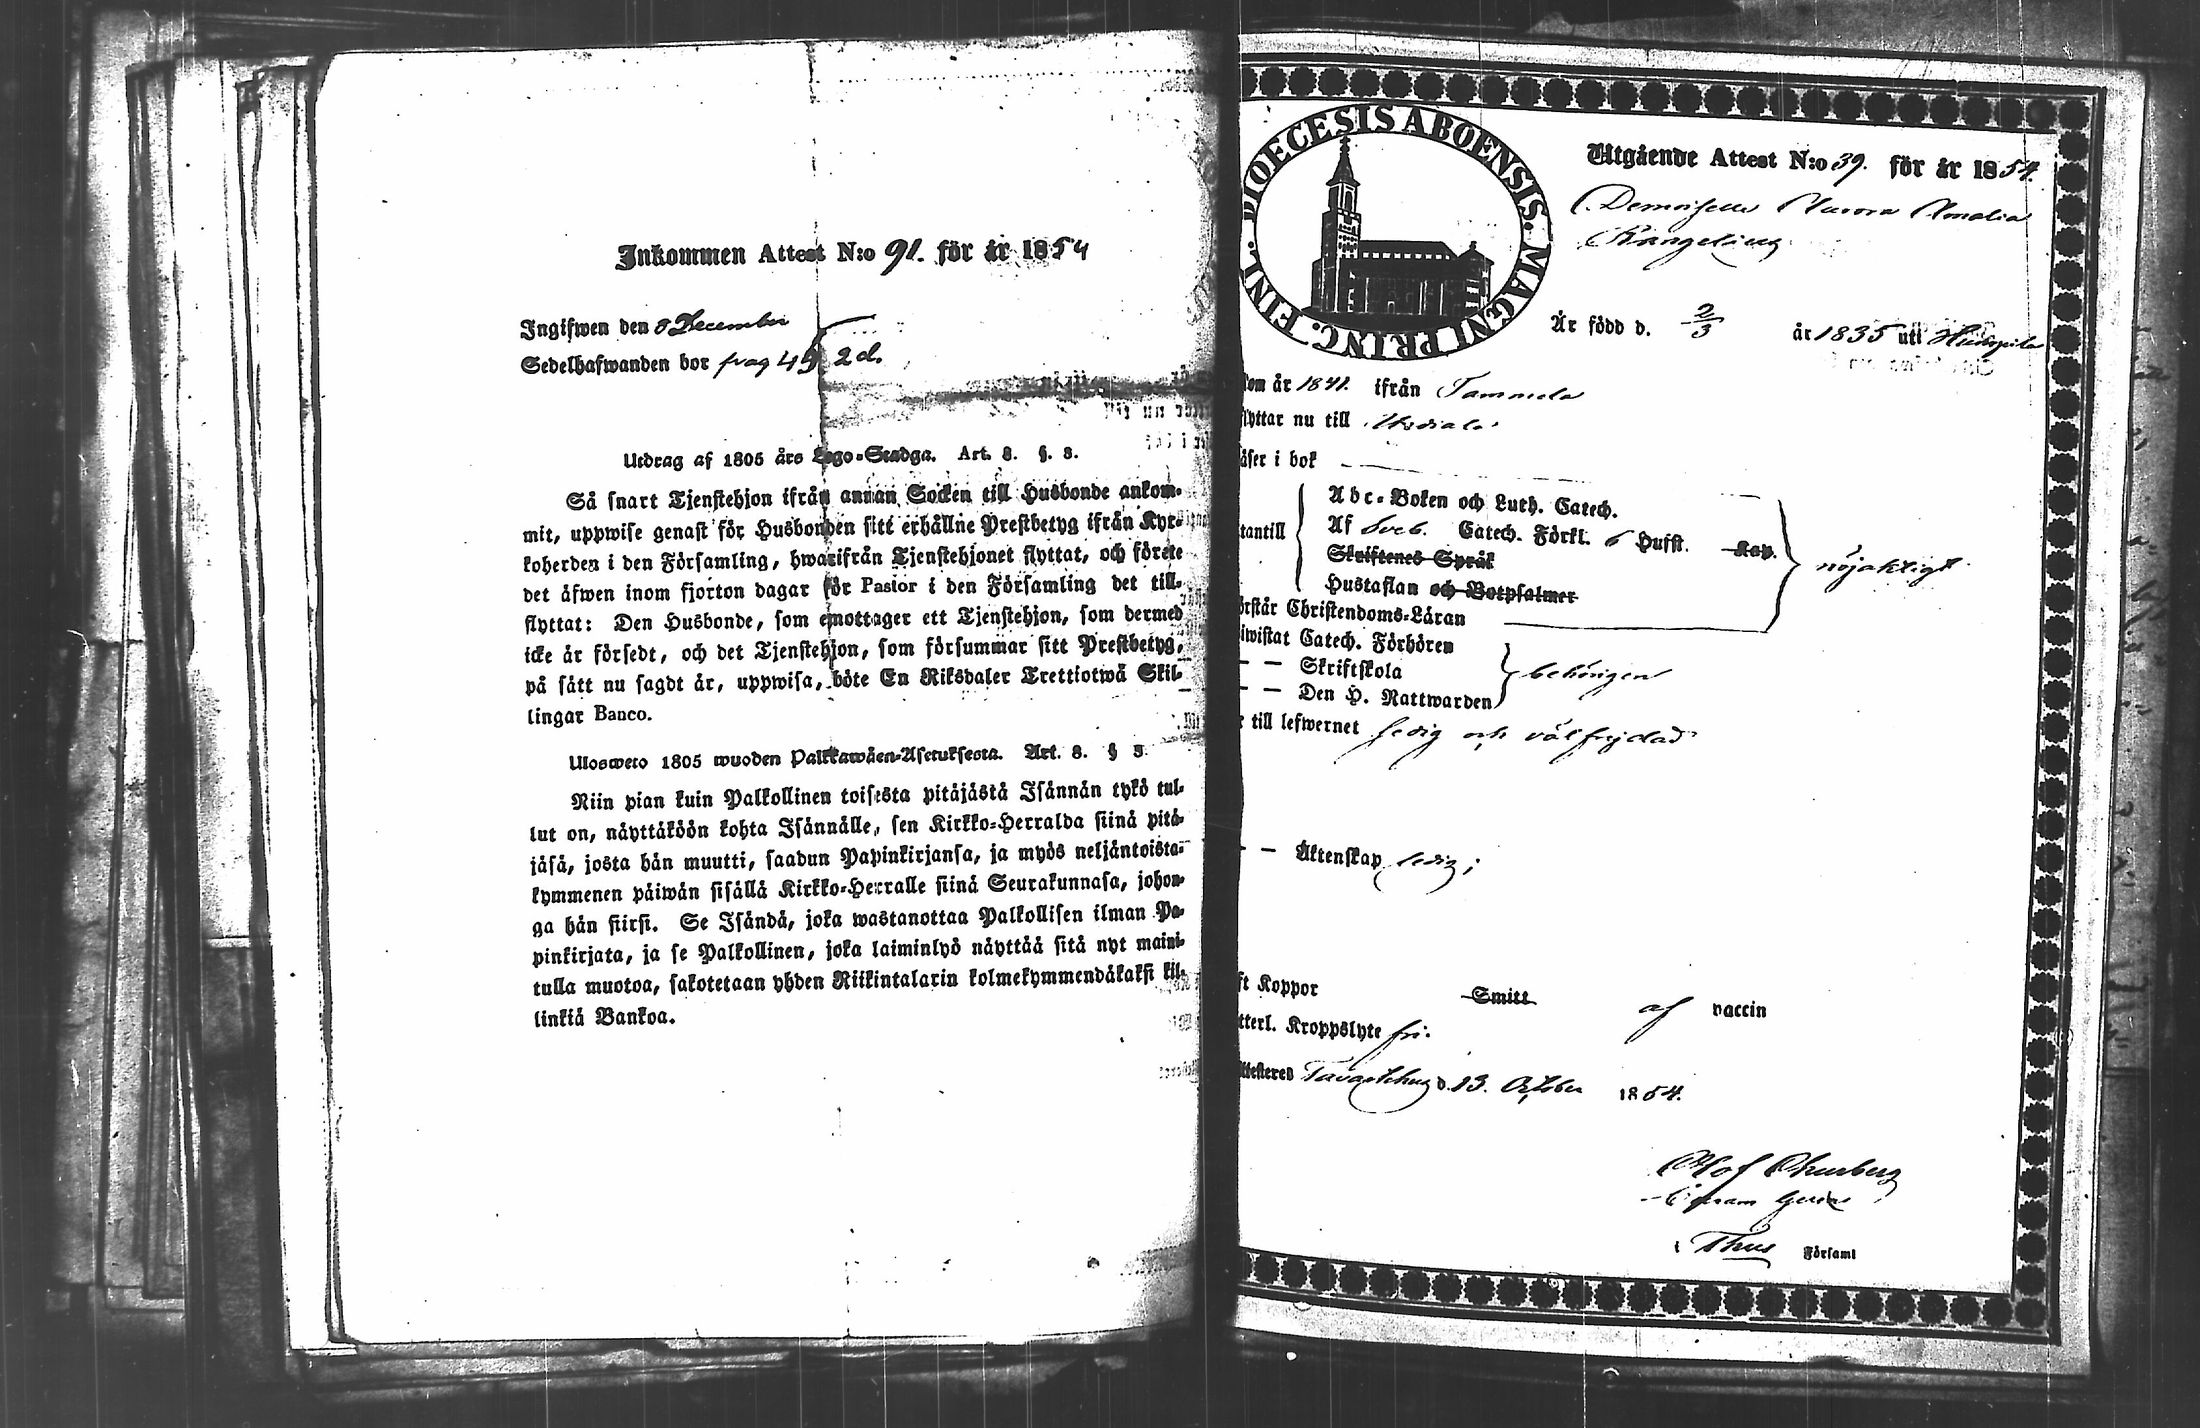 Inkommen Attest N:o 91. för år 1854
Ingifwen den 8 December
Sedelhafwanden bor pag 49 2 d.
Utdrag af 1805 års Lego-Stadga. Art. 8. §. 3.
Så snart Tjenstehjon ifrån annan Socken till Husbonde ankom-
mit, uppwise genast för Husbonden sitt erhållne Prestbetyg ifrån Kyr-
koherden i den Församling, hwarifrån Tjenstehjonet flyttat, och förete
det äfwen inom fjorton dagar för Pastor i den Församling det till-
flyttat: Den Husbonde, som emottager ett Tjenstehjon, som dermed
icke är försedt, och det Tjenstehjon, som försummar sitt Prestbetyg,
på sätt nu sagdt är, uppwisa, böte En Riksdaler Trettiotwå Skil-
lingar Banco.
Ulosweto 1805 wuoden Palkkawäen-Asetuksesta. Art. 8. § 3.
Niin pian kuin Palkollinen toisesta pitäjästä Isännän tykö tul-
lut on, näyttäköön kohta Isännälle, sen Kirkko-Herralda siinä pitä-
jäsä, josta hän muutti, saadun Papinkirjansa, ja myös neljäntoista-
kymmenen päiwän sisällä Kirkko-Herralle siinä Seurakunnasa, johon-
ga hän siirsi. Se Isändä, joka wastanottaa Palkollisen ilman Pa-
pinkirjata, ja se Palkollinen, joka laiminlyö näyttää sitä nyt maini-
tulla muotoa, sakotetaan yhden Riikintalarin kolmekymmendäkaksi kil-
linkiä Bankoa.
DIOECESIS ABOENSIS. MAGNI PRINC. FINL.
Utgående Attest N:o 39. för år 1854.
Demoiselle Aurora Amalia
Är född d. 2/3 år 1835 uti Humpila
kom år 1841. ifrån Tammela
flyttar nu till Uskiala
läser i bok
Abc-Boken och Luth. Catech.
utantill Af Sveb. Catech. Förkl. 6 Hufst. Kap.
Skriftenes Språk
Hustaflan och Botpsalmer
nöjaktigt
örstår Christendoms-Läran
iwistat Catech. Förhören
— — Skriftskola behörigen
— — Den H. Nattwarden
r till lefwernet ledig och välfrejdad
— — Äktenskap ledig;
ft Koppor Smitt af vaccin
tterl. Kroppslyte fri.
Attesteras Tavastehus d. 13. October 1854.
Olof
i Thus Församl